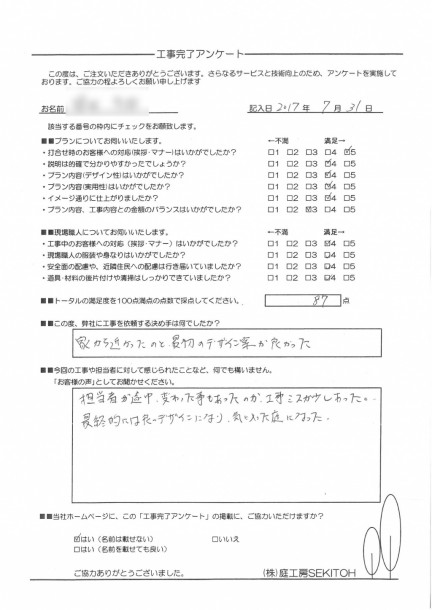 工事完了アンケート
この度は、ご注文いただきありがとうございます。さらなるサービスと技術向上のため、アンケートを実施して
おります。ご協力の程よろしくお願い申し上げます
お名前
記入日 2017 年 7 月 31 日
該当する番号の枠内にチェックをお願致します。
■■プランについてお伺いいたします。 ←不満 満足→
・打合せ時のお客様への対応(挨拶・マナー)はいかがでしたか? □1 □2 □3 □4 ☑5
・説明は的確で分かりやすかったでしょうか? □1 □2 □3 ☑4 □5
・プラン内容(デザイン性)はいかがでしたか? □1 □2 □3 ☑4 □5
・プラン内容(実用性)はいかがでしたか? □1 □2 □3 ☑4 □5
・イメージ通りに仕上がりましたか? □1 □2 □3 ☑4 □5
・プラン内容、工事内容との金額のバランスはいかがでしたか? □1 □2 ☑3 □4 □5
■■現場職人についてお伺いいたします。 ←不満 満足→
・工事中のお客様への対応(挨拶・マナー)はいかがでしたか? □1 □2 □3 ☑4 □5
・現場職人の服装や身なりはいかがでしたか? □1 □2 □3 ☑4 □5
・安全面の配慮や、近隣住民への配慮は行き届いていましたか? □1 □2 □3 ☑4 □5
・道具・材料の後片付けや清掃はしっかりできていましたか? □1 □2 □3 ☑4 □5
■■トータルの満足度を100点満点の点数で採点してください。 87 点
■■この度、弊社に工事を依頼する決め手は何でしたか?
家から近かったのと最初のデザイン案が良かった
■■今回の工事や担当者に対して感じられたことなど、何でも構いません。
「お客様の声」としてお聞かせください。
担当者が途中、変わった事もあったのか、工事ミスが少しあった。
最終的には良いデザインになり、気に入った庭になった。
■■当社ホームページに、この「工事完了アンケート」の掲載に、ご協力いただけますか?
☑はい(名前は載せない) □いいえ
□はい(名前を載せても良い)
ご協力ありがとうございました。 (株)庭工房SEKITOH